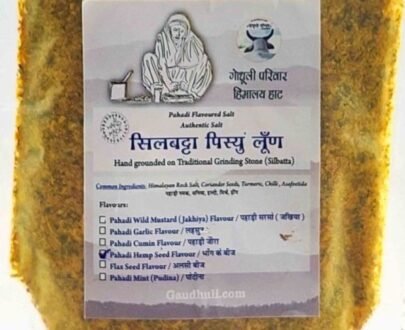 गोधूली परिवार
हिमालय हाट
Pahadi Flavoured Salt
Authentic Salt
सिलबट्टा पिस्युं लूँण
Hand grounded on Traditional Grinding Stone (Silbatta)
Common Ingredients: Himalayan Rock Salt, Coriander Seeds, Turmeric, Chilli, Asafoetida
पहाड़ी नमक, धनिया, हल्दी, मिर्च, हींग
Flavours:
Pahadi Wild Mustard (Jakhiya) Flavour / पहाड़ी सरसों ( जखिया )
Pahadi Garlic Flavour / लहसुन
Pahadi Cumin Flavour / पहाड़ी जीरा
Pahadi Hemp Seed Flavour / भाँग के बीज
Flax Seed Flavour / अलसी बीज
Pahadi Mint (Pudina) / पोदीना
Gaudhuli.com